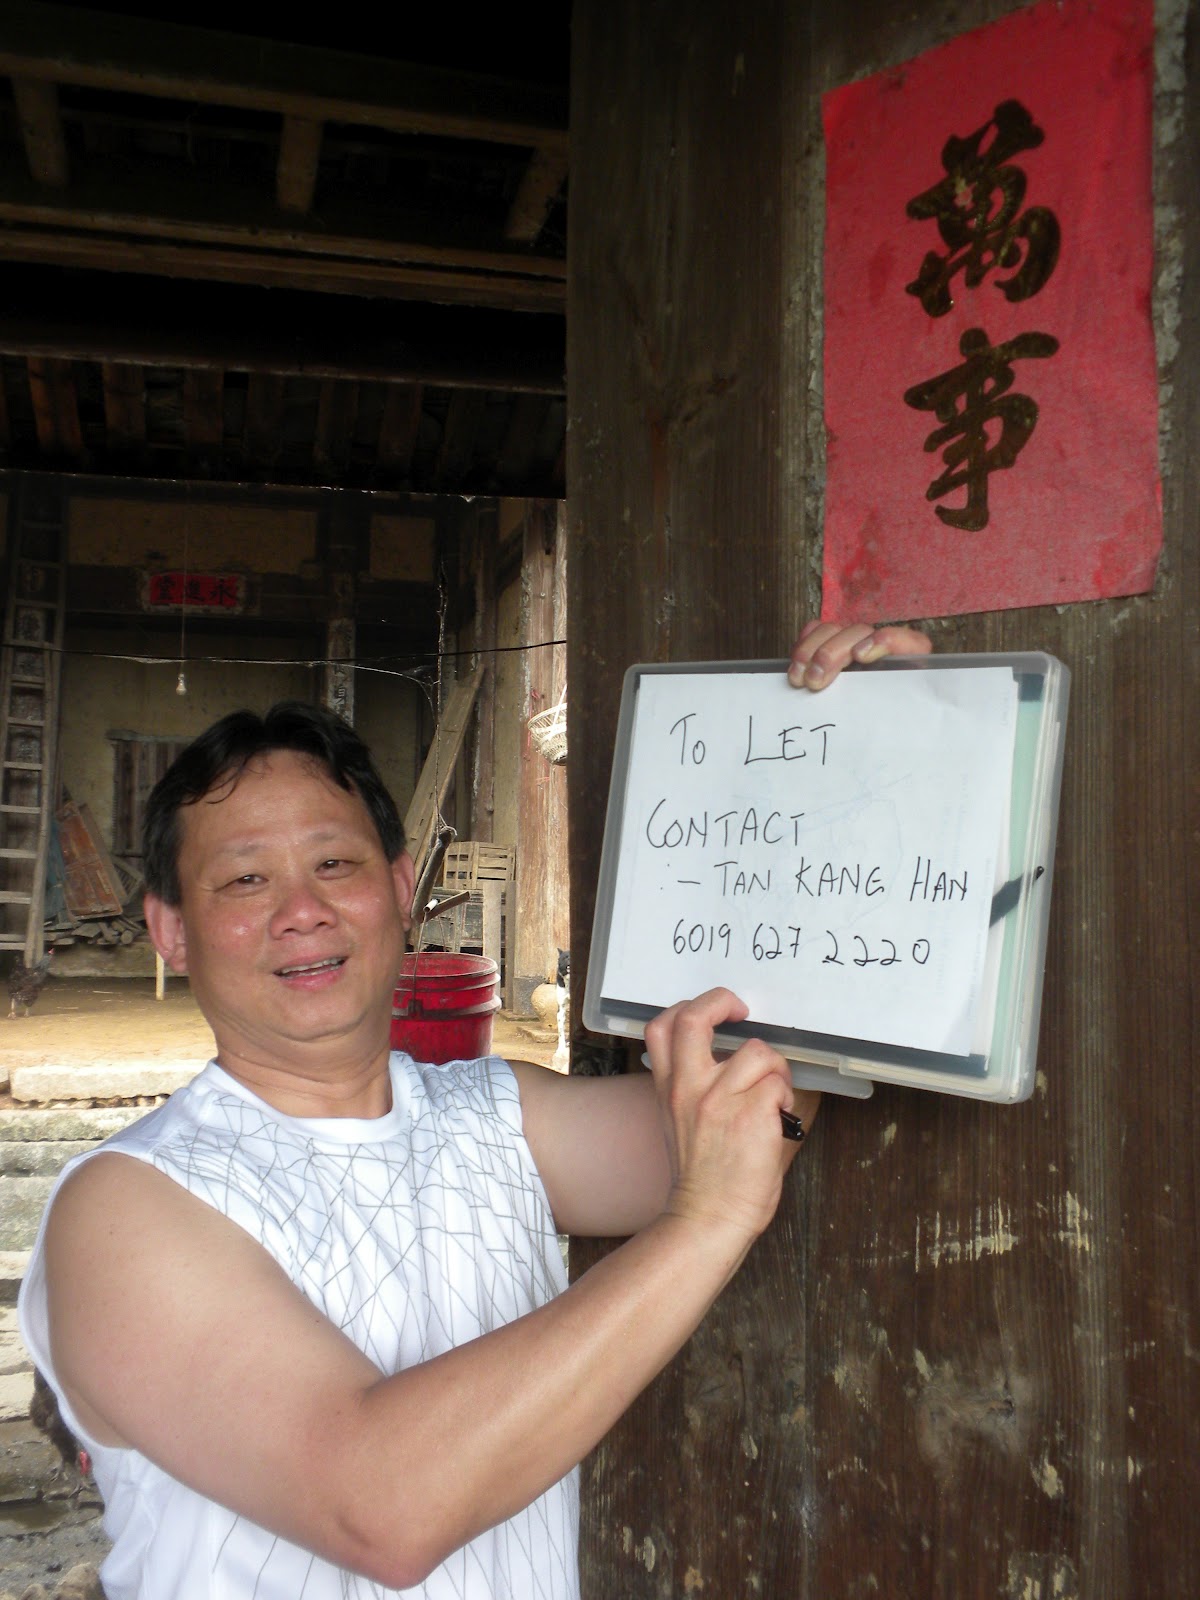 萬
事
To LET
CONTACT
:- TAN KANG HAN
6019 627 2220